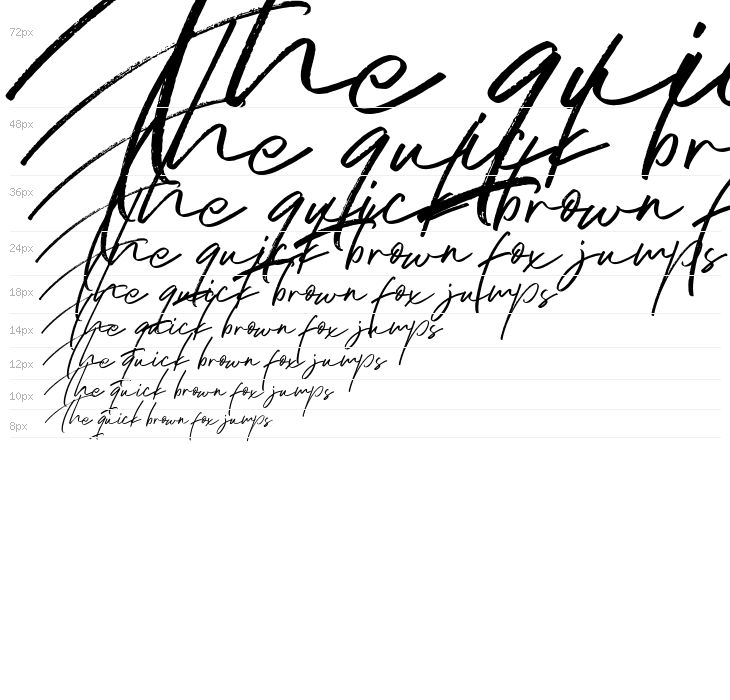 72px The qui
48px The quick br
36px The quick brown f
24px The quick brown fox jumps
18px The quick brown fox jumps
14px The quick brown fox jumps
12px The quick brown fox jumps
10px The quick brown fox jumps
8px The quick brown fox jumps